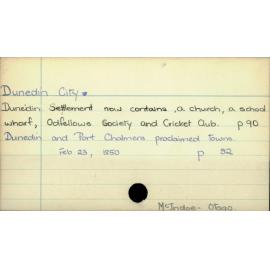 Dunedin City.
Dunedin Settlement now contains, a church, a school
wharf, Oddfellows Society and Cricket Club. p 90
Dunedin and Port Chalmers proclaimed towns.
Feb 23, 1850 p 92
McIndoe - Otago.